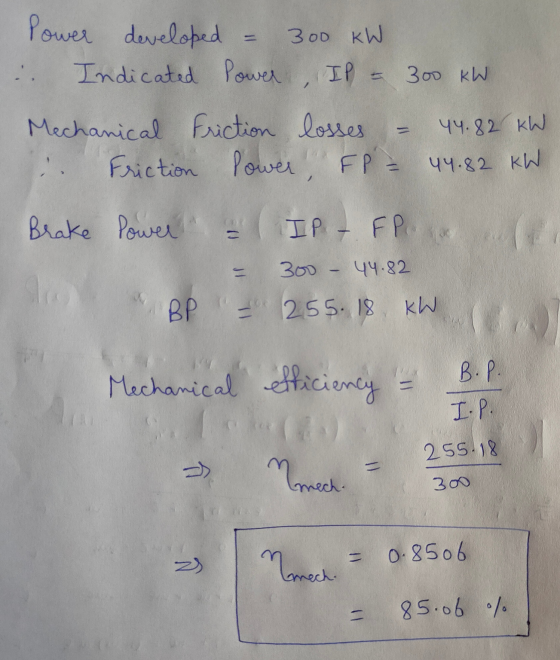 Power developed = 300 KW
∴ Indicated Power, IP = 300 KW
Mechanical Friction losses = 44.82 KW
∴ Friction Power, FP = 44.82 KW
Brake Power = IP - FP
= 300 - 44.82
BP = 255.18 KW
Mechanical efficiency = B.P. / I.P.
⇒ ηmech. = 255.18 / 300
⇒ ηmech. = 0.8506
= 85.06 %